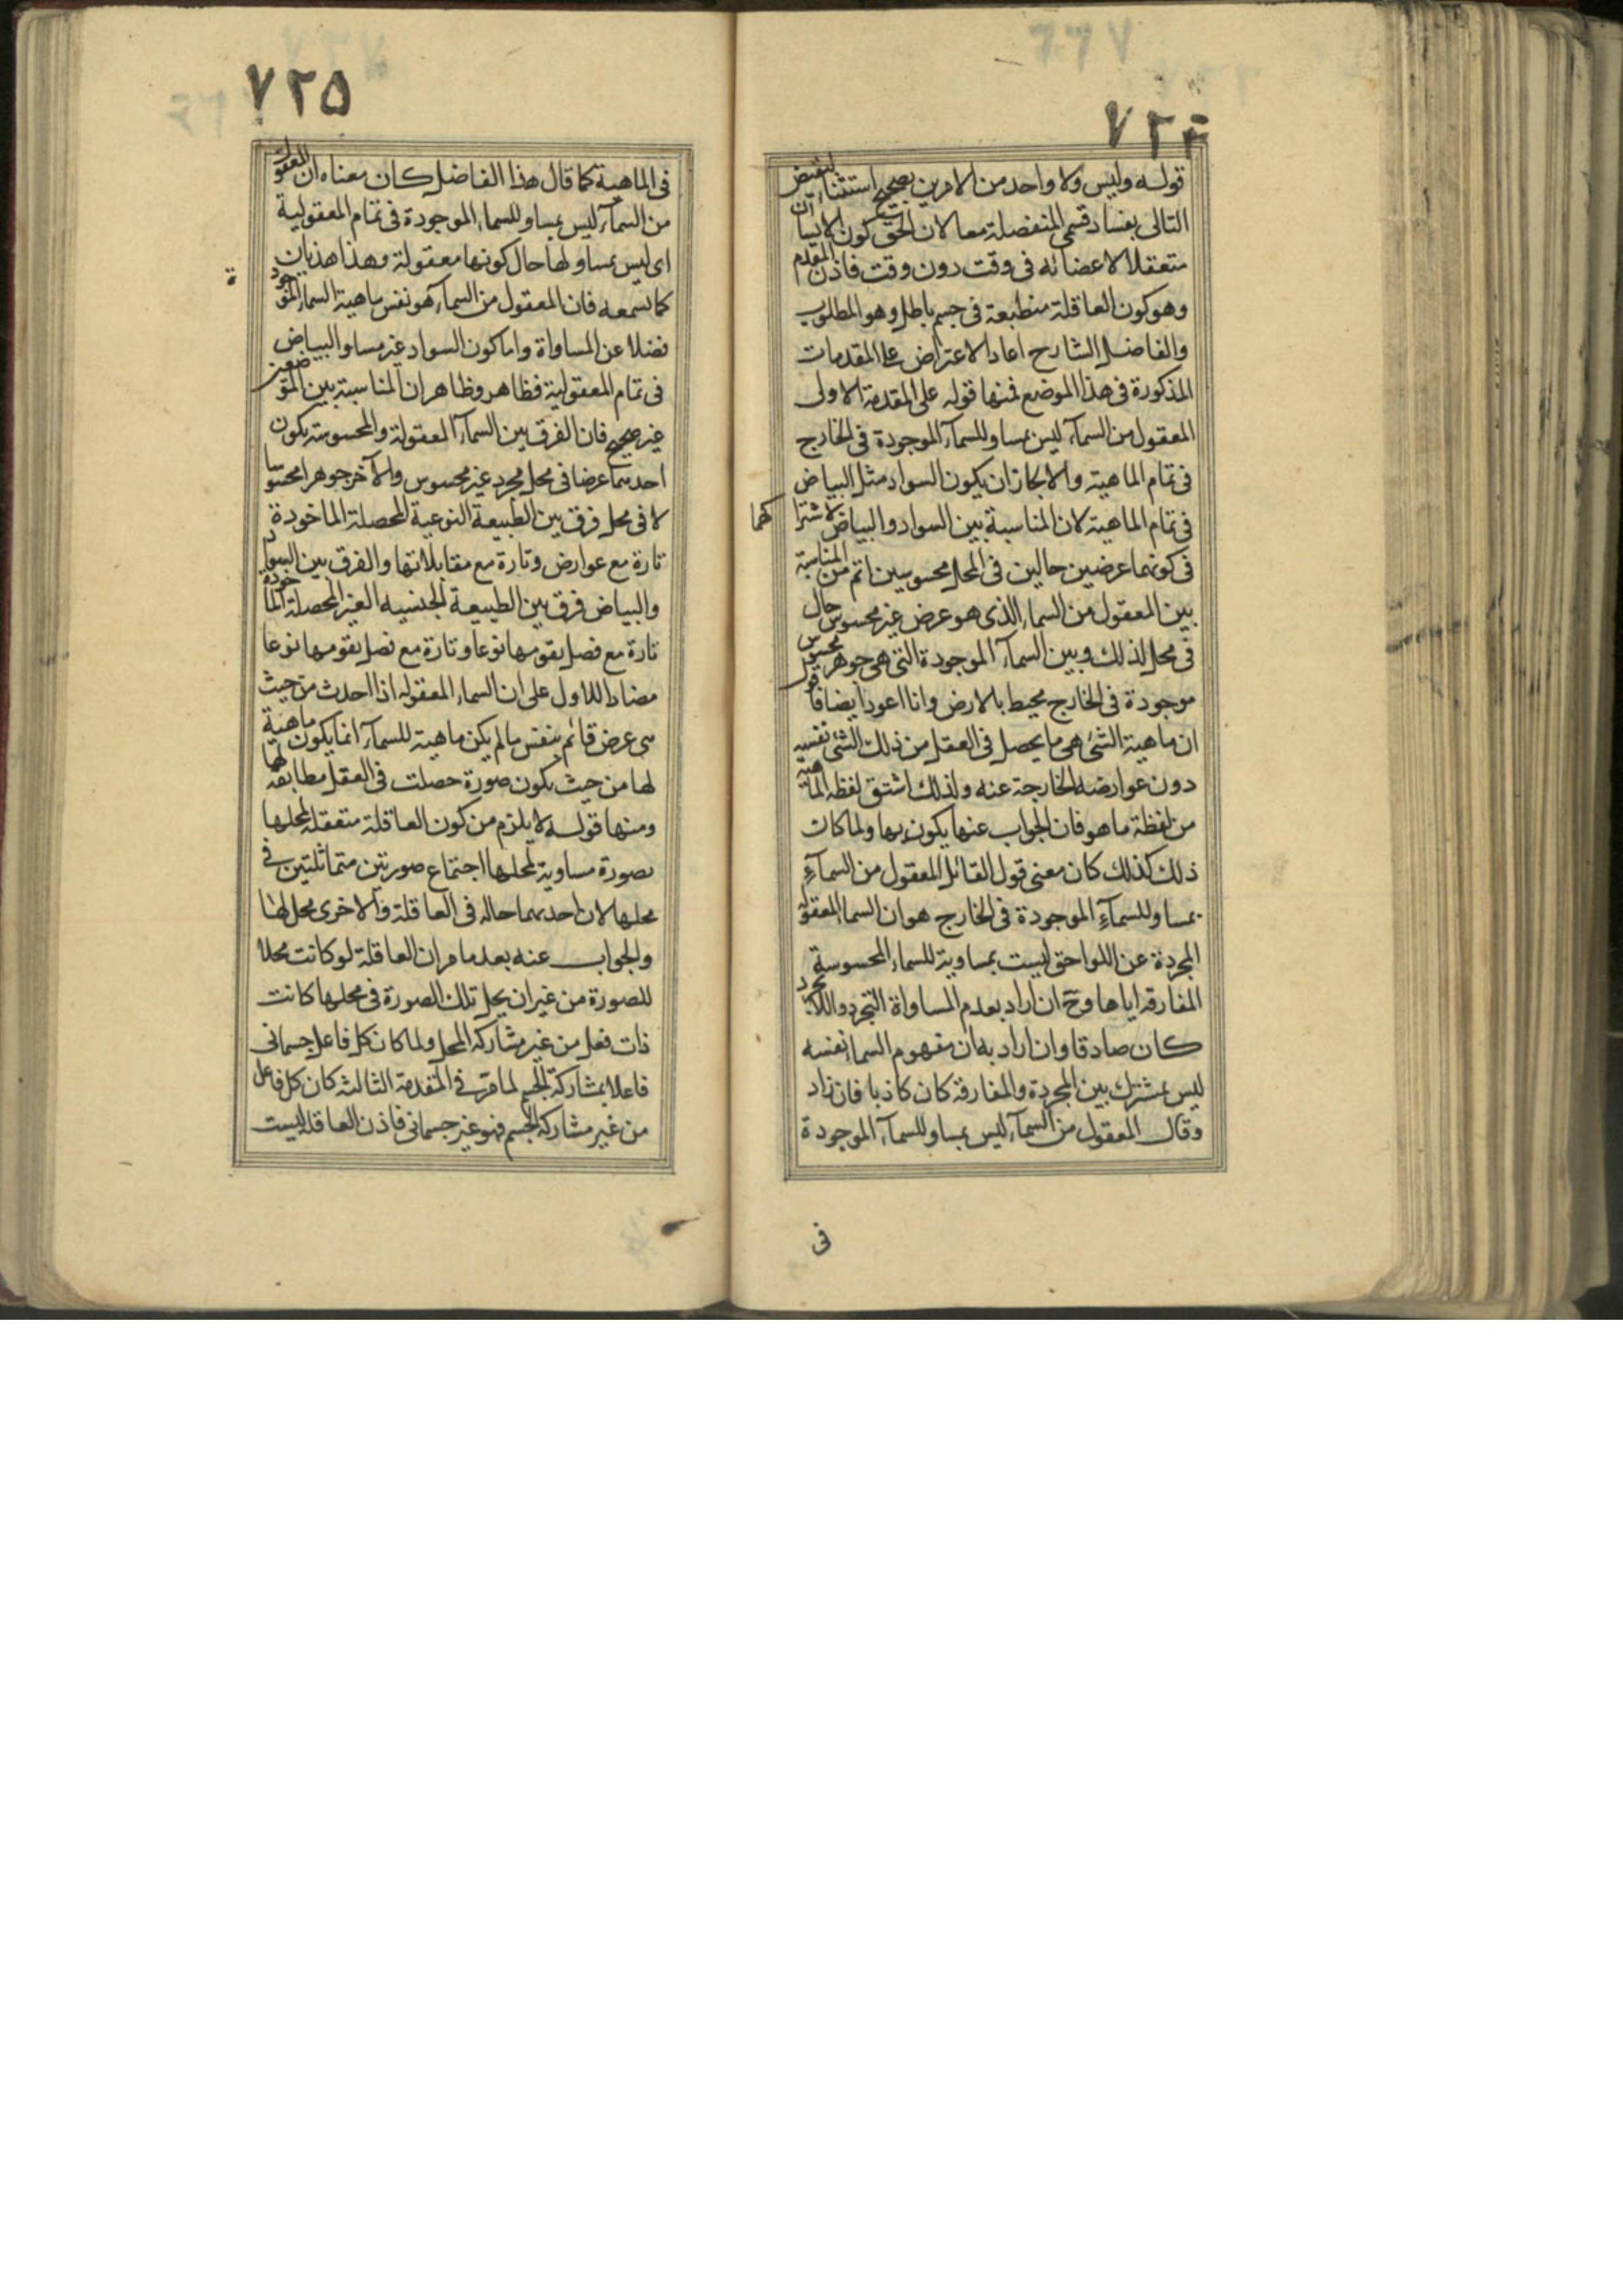 ٧٢٤
قوله وليس ولا واحد من الامرين بصحيح استثناء لنقيض
التالى بفساد قسمى المنفصلة معا لان الحق كون الانسان
متعقلا لاعضائه فى وقت دون وقت فاذن المقدم
وهو كون العاقلة منطبعة فى جسم باطل وهو المطلوب
والفاضل الشارح اعاد الاعتراض على المقدمات
المذكورة فى هذا الموضع فمنها قوله على المقدمة الاولى
المعقول من السمآء ليس بمساو للسمآء الموجودة فى الخارج
فى تمام الماهية والا لجاز ان يكون السواد مثل البياض
فى تمام الماهية لان المناسبة بين السواد والبياض لاشتراكهما
فى كونهما عرضين حالين فى المحل محسوسين اتم من المناسبة
بين المعقول من السماء الذى هو عرض غير محسوس حال
فى محل لذلك وبين السمآء الموجودة التى هى جوهر محسوس
موجودة فى الخارج محيط بالارض وانا اعود ايضا فاقول
ان ماهية الشئ هى ما يحصل فى العقل من ذلك الشئ نفسه
دون عوارضه الخارجة عنه ولذلك اشتق لفظه الماهية
من لفظة ما هو فان الجواب عنها يكون بها ولما كان
ذلك كذلك كان معنى قول القائل المعقول من السمآء
بمساو للسمآء الموجودة فى الخارج هو ان السماء المعقولة
المجردة عن اللواحق ليست بمساوية للسماء المحسوسة
المفارقه اياها وح ان اراد بعدم المساواة التجرد واللاتجرد
كان صادقا وان اراد به ان مفهوم السماء نفسه
ليس بمشترك بين المجردة والمفارقة كان كاذبا فان زاد
وقال المعقول من السمآء ليس بمساو للسمآء الموجودة
فى
٧٢٥
فى الماهية كما قال هذا الفاضل كان معناه ان المعقول
من السمآء ليس بمساو للسماء الموجودة فى تمام المعقولية
اى ليس بمساو لها حال كونها معقولة وهذا هذيان
كما تسمعه فان المعقول من السمآء هو نفس ماهية السماء الموجودة
فضلا عن المساواة واما كون السواد غير مساو البياض
فى تمام المعقولية فظاهر وظاهر ان المناسبة بين الموضعين
غير صحيح فان الفرق بين السمآء المعقولة والمحسوسة بكون
احدهما عرضا فى محل مجرد غير محسوس والآخر جوهرا محسوسا
لا فى محل فرق بين الطبيعة النوعية المحصلة الماخوذة
تارة مع عوارض وتارة مع مقابلاتها والفرق بين السواد
والبياض فرق بين الطبيعة الجنسيه الغير المحصلة الماخوذة
تارة مع فصل يقومها نوعا وتارة مع فصل يقومها نوعا
مضادا للاول على ان السماء المعقوله اذا احدث من حيث
هى عرض قائم بنفس ما لم يكن ماهية للسمآء انما يكون ماهية
لها من حيث يكون صورة حصلت فى العقل مطابقة لها
ومنها قوله لا يلزم من كون العاقلة متعقلة لمحلها
بصورة مساوية لمحلها اجتماع صورتين متماثلتين فى
محلها لان احديهما حاله فى العاقلة والاخرى محل لها
والجواب عنه بعد ما مر ان العاقلة لو كانت محلا
للصورة من غير ان يحل تلك الصورة فى محلها كانت
ذات فعل من غير مشاركة المحل ولما كان كل فاعل جسمانى
فاعلا بمشاركة الجسم لما مر فى المقدمة الثالثه كان كل فاعل
من غير مشاركة الجسم فهو غير جسمانى فاذن العاقلة ليست